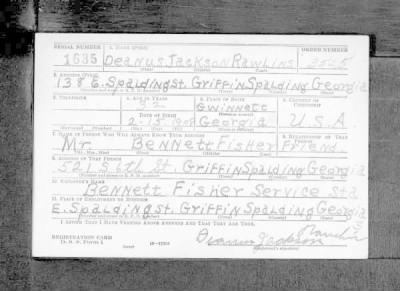 SERIAL NUMBER 1. NAME (Print) ORDER NUMBER
1635 Deanus Jackson Rawlins
(First) (Middle) (Last)
2. ADDRESS (Print)
138 E. Spalding St. Griffin Spalding Georgia
3. TELEPHONE 4. AGE IN YEARS 5. PLACE OF BIRTH 6. COUNTRY OF CITIZENSHIP
32 Gwinnett
DATE OF BIRTH
2-15-1908 Georgia U.S.A
7. NAME OF PERSON WHO WILL ALWAYS KNOW YOUR ADDRESS 8. RELATIONSHIP OF THAT PERSON
Mr Bennett Fisher friend
9. ADDRESS OF THAT PERSON
521 S. 6th St. Griffin Spalding Georgia
10. EMPLOYER'S NAME
Bennett Fisher Service Sta
11. PLACE OF EMPLOYMENT OR BUSINESS
E. Spalding St. Griffin Spalding Georgia
I AFFIRM THAT I HAVE VERIFIED ABOVE ANSWERS AND THAT THEY ARE TRUE.
REGISTRATION CARD
D. S. S. Form 1
Deanus Jackson Rawlins